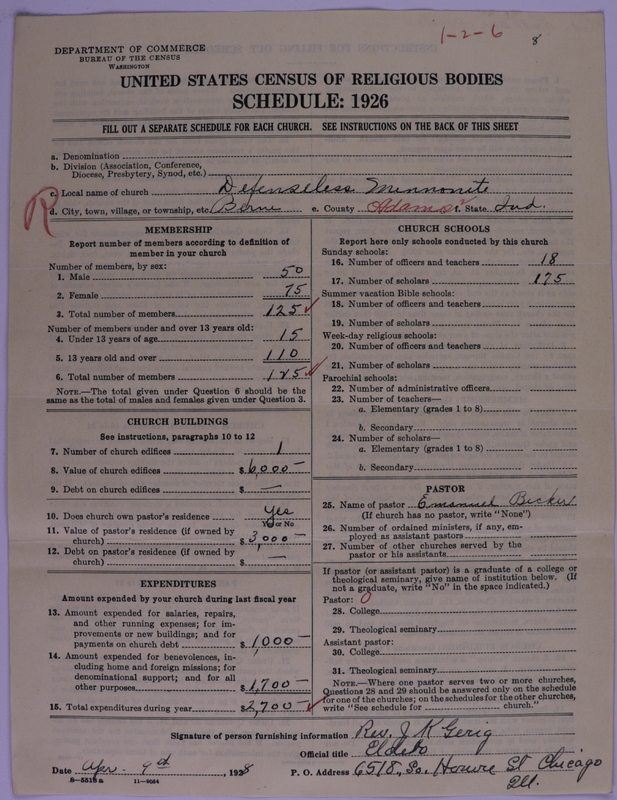 1-2-6
8
DEPARTMENT OF COMMERCE
BUREAU OF THE CENSUS
WASHINGTON
UNITED STATES CENSUS OF RELIGIOUS BODIES
SCHEDULE: 1926
FILL OUT A SEPARATE SCHEDULE FOR EACH CHURCH. SEE INSTRUCTIONS ON THE BACK OF THIS SHEET
a. Denomination
b. Division (Association, Conference,
Diocese, Presbytery, Synod, etc.)
R
c. Local name of church Defenseless Minnonite
d. City, town, village, or township, etc. Berne e. County Adams f. State Ind.
MEMBERSHIP
Report number of members according to definition of
member in your church
Number of members, by sex:
1. Male 50
2. Female 75
3. Total number of members 125 ✓
Number of members under and over 13 years old:
4. Under 13 years of age 15
5. 13 years old and over 110
6. Total number of members 125 ✓
NOTE.—The total given under Question 6 should be the
same as the total of males and females given under Question 3.
CHURCH BUILDINGS
See instructions, paragraphs 10 to 12
7. Number of church edifices 1
8. Value of church edifices $6,000—
9. Debt on church edifices $ —
10. Does church own pastor's residence Yes
Yes or No
11. Value of pastor's residence (if owned by
church) $3,000—
12. Debt on pastor's residence (if owned by
church) $ —
EXPENDITURES
Amount expended by your church during last fiscal year
13. Amount expended for salaries, repairs,
and other running expenses; for im-
provements or new buildings; and for
payments on church debt $1,000—
14. Amount expended for benevolences, in-
cluding home and foreign missions; for
denominational support; and for all
other purposes $1,700—
15. Total expenditures during year $2,700— ✓
CHURCH SCHOOLS
Report here only schools conducted by this church
Sunday schools:
16. Number of officers and teachers 18
17. Number of scholars 175
Summer vacation Bible schools:
18. Number of officers and teachers
19. Number of scholars
Week-day religious schools:
20. Number of officers and teachers
21. Number of scholars
Parochial schools:
22. Number of administrative officers
23. Number of teachers—
a. Elementary (grades 1 to 8)
b. Secondary
24. Number of scholars—
a. Elementary (grades 1 to 8)
b. Secondary
PASTOR
25. Name of pastor Emanuel Becker
(If church has no pastor, write "None")
26. Number of ordained ministers, if any, em-
ployed as assistant pastors
27. Number of other churches served by the
pastor or his assistants
If pastor (or assistant pastor) is a graduate of a college or
theological seminary, give name of institution below. (If
not a graduate, write "No" in the space indicated.)
Pastor: O
28. College
29. Theological seminary
Assistant pastor:
30. College
31. Theological seminary
NOTE.—Where one pastor serves two or more churches,
Questions 28 and 29 should be answered only on the schedule
for one of the churches; on the schedules for the other churches,
write "See schedule for church."
Signature of person furnishing information Rev. J K Gerig
Official title
Date Apr. 9th, 1928 P. O. Address 6518, So. St Chicago
Ill.
8-5518a 11-9024